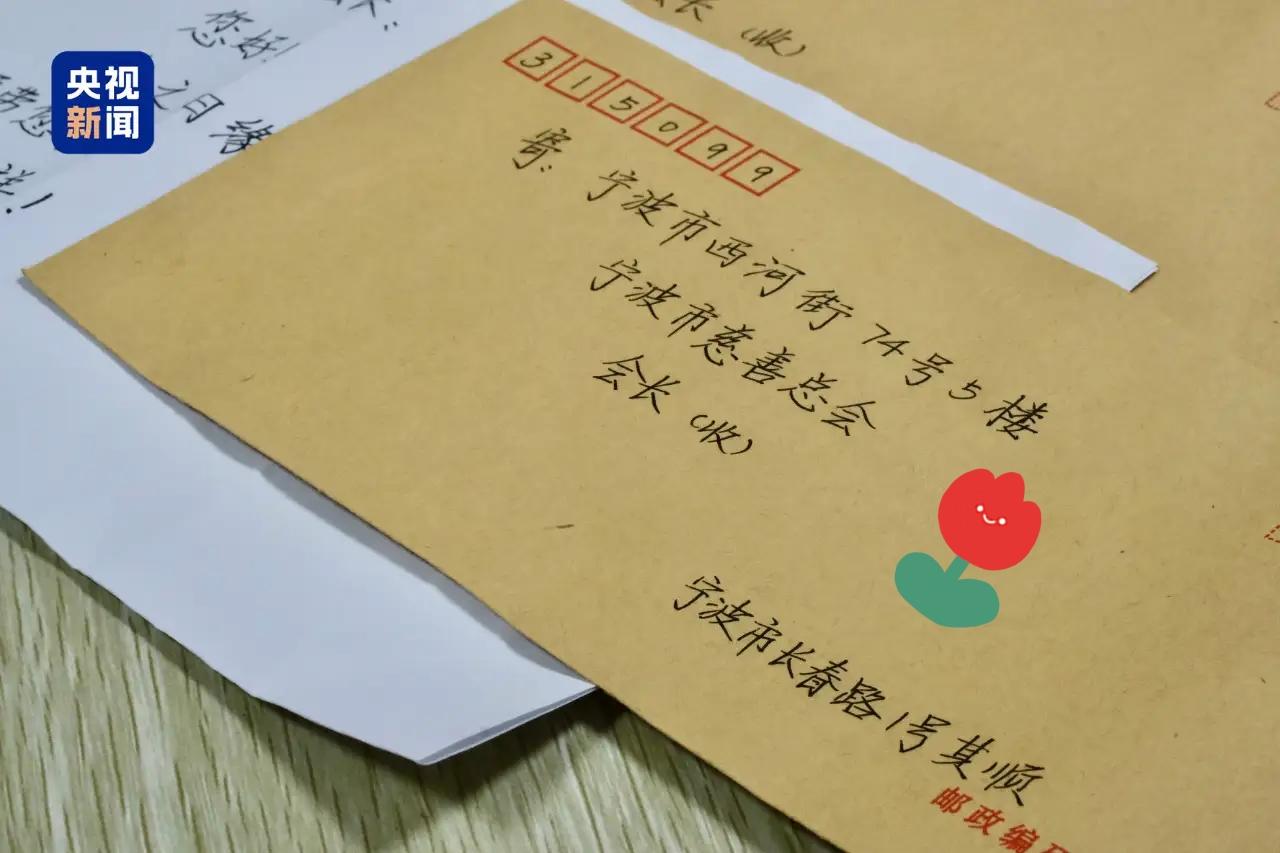 央视
新闻
您好!
之日 缘
送!
会长 (收)
315099
寄: 宁波市西河街74号5楼
宁波市慈善总会
会长 (收)
宁波市长春路1号其顺
邮政编